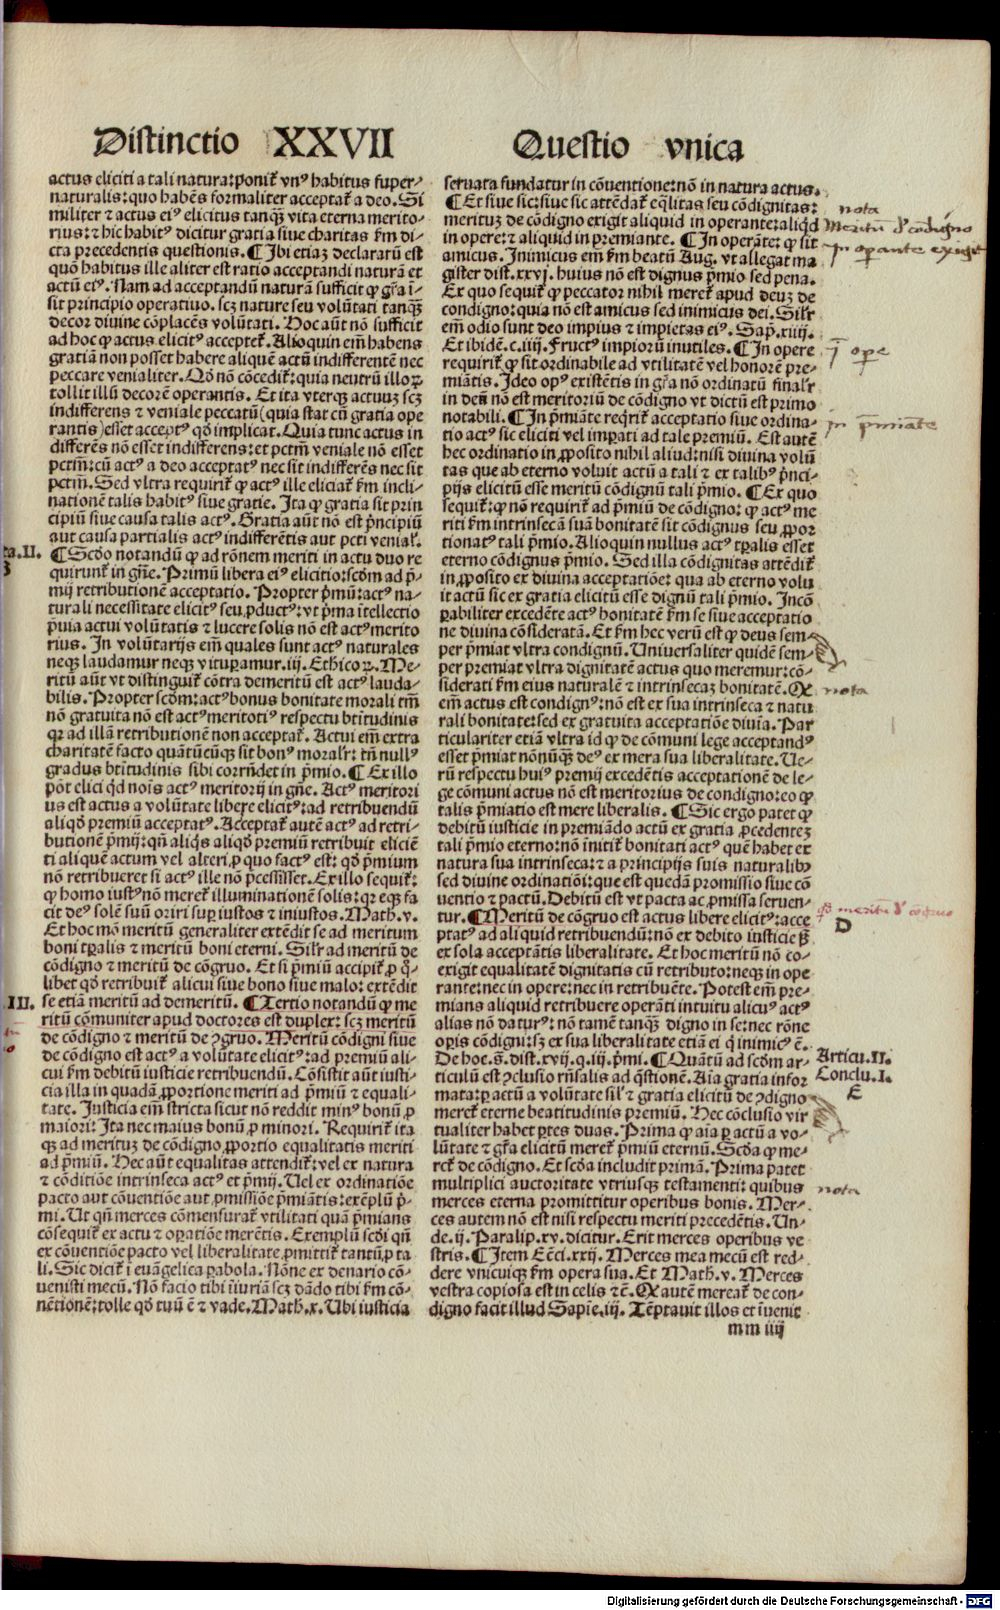 Distinctio XXVII Questio vnica
actus eliciti a tali natura: ponit᷑ vnꝰ habitus super⸗
naturalis: quo habēs formaliter acceptat᷑ a deo. Si
militer ⁊ actus eiꝰ elicitus tanqȝ vita eterna merito⸗
rius: ⁊ hic habitꝰ dicitur gratia siue charitas k̄m di⸗
cta precedentis questionis. ¶ Ibi etiaȝ declaratū est
quō habitus ille aliter est ratio acceptandi naturā et
actū eiꝰ. Nam ad acceptandū naturā sufficit ꝙ gr̄a ī⸗
sit principio operatiuo. scȝ nature seu volūtati tanqȝ
decor diuine cōplacēs volūtati. Hoc aūt nō sufficit
ad hoc ꝙ actus elicitꝰ acceptet᷑. Alioquin em̄ habens
gratiā non posset habere aliquē actū indifferentē nec
peccare venialiter. Qd̄ nō cōcedit᷑: quia neutrū illoꝝ
tollit illū decorē operantis. Et ita vterqȝ actuuȝ scȝ
indifferens ⁊ veniale peccatū (quia stat cū gratia ope
rantis) esset acceptꝰ qd̄ implicat. Quia tunc actus in
differēs nō esset indifferens: et pctm̄ veniale nō esset
pctm̄: cū actꝰ a deo acceptatꝰ nec sit indifferēs nec sit
pctm̄. Sed vltra requirit᷑ ꝙ actꝰ ille eliciat᷑ k̄m incli⸗
nationē talis habitꝰ siue gratie. Ita ꝙ gratia sit prin
cipiū siue causa talis actꝰ. Gratia aūt nō est p̄ncipiū
aut causa partialis actꝰ indifferētis aut pcti venial᷑.
ta.II. ¶ Scd̄o notandū ꝙ ad rōnem meriti in actu duo re
quirunt᷑ in gn̄e. Primū libera eiꝰ elicitio: scd̄m ad p̄⸗
mij retributionē acceptatio. Propter p̄mū: actꝰ na⸗
turali necessitate elicitꝰ seu ꝓductꝰ: vt p̄ma ītellectio
p̄uia actui volūtatis ⁊ lucere solis nō est actꝰ merito
rius. In volūtarijs em̄ quales sunt actꝰ naturales
neqȝ laudamur neqȝ vituꝑamur. iij. Ethicoꝝ. Me⸗
ritū aūt vt distinguit᷑ cōtra demeritū est actꝰ lauda⸗
bilis. Propter scd̄m: actꝰ bonus bonitate morali tm̄
nō gratuita nō est actꝰ meritoriꝰ respectu btītudinis
qꝛ ad illā retributionē non acceptat᷑. Actui em̄ extra
charitatē facto quātūcūqȝ sit bonꝰ moralr̄: tn̄ nullꝰ
gradus btītudinis sibi corrn̄det in p̄mio. ¶ Ex illo
pōt elici qd̄ nois̄ actꝰ meritorij in gn̄e. Actꝰ meritori
us est actus a volūtate libere elicitꝰ: ad retribuendū
aliqd̄ premiū acceptatꝰ. Acceptat᷑ autē actꝰ ad retri⸗
butionē p̄mij: qn̄ aliq̄s aliqd̄ premiū retribuit eliciē
ti aliquē actum vel alteri ꝓ quo factꝰ est: qd̄ p̄mium
nō retribueret si actꝰ ille nō p̄cessisset. Ex illo sequit᷑:
ꝙ homo iustꝰ nō meret᷑ illuminationē solis: qꝛ eqȝ fa
cit deꝰ solē suū oriri suꝑ iustos ⁊ iniustos. Math. v.
Et hoc mō meritū generaliter extēdit se ad meritum
boni tꝑalis ⁊ meritū boni eterni. Silr̄ ad meritū de
cōdigno ⁊ meritū de cōgruo. Et si p̄miū accipit᷑ ꝓ q̄⸗
libet qd̄ retribuit᷑ alicui siue bono siue malo: extēdit
III. se etiā meritū ad demeritū. ¶ Tertio notandū ꝙ me
ritū cōmuniter apud doctores est duplex: scȝ meritū
de cōdigno ⁊ meritū de ꝯgruo. Meritū cōdigni siue
de cōdigno est actꝰ a volūtate elicitꝰ: ad premiū ali⸗
cui k̄m debitū iusticie retribuendū. Cōsistit aūt iusti⸗
cia illa in quadā ꝓportione meriti ad p̄miū ⁊ equali⸗
tate. Iusticia em̄ stricta sicut nō reddit minꝰ bonū ꝓ
maiori: Ita nec maius bonū ꝓ minori. Requirit᷑ ita
qȝ ad merituȝ de cōdigno ꝓportio equalitatis meriti
ad p̄miū. Hec aūt equalitas attendit᷑: vel ex natura
⁊ cōditiōe intrinseca actꝰ et p̄mij. Uel ex ordinatiōe
pacto aut cōuentiōe aut ꝓmissiōe p̄miātis: exēplū p̄⸗
mi. Ut qn̄ merces cōmensurat᷑ vtilitati quā p̄mians
cōsequit᷑ ex actu ⁊ oꝑatiōe merētis. Exemplū scd̄i qn̄
ex cōuentiōe pacto vel liberalitate ꝓmittit᷑ tantū ꝓ ta
li. Sic dicit᷑ ī euāgelica ꝑabola. Nōne ex denario cō⸗
uenisti mecū. Nō facio tibi īiuriā: scȝ dādo tibi k̄m cō⸗
uētionē: tolle qd̄ tuū ē ⁊ vade. Math. x. Ubi iusticia
seruata fundatur in cōuentione: nō in natura actus.
¶ Et siue sic: siue sic attēdat᷑ eq̄litas seu cōdignitas:
merituȝ de cōdigno exigit aliquid in operante: aliqd̄
in opere: ⁊ aliquid in premiante. ¶ In operāte: ꝙ sit
amicus. Inimicus em̄ k̄m beatū Aug. vt allegat ma
gister dist. xxvj. huius nō est dignus p̄mio sed pena.
Ex quo sequit᷑ ꝙ peccator nihil meret᷑ apud deuȝ de
condigno: quia nō est amicus sed inimicus dei. Silr̄
em̄ odio sunt deo impius ⁊ impietas eiꝰ. Sap̄. xiiij.
Et ibidē. c. iiij. Fructꝰ impiorū inutiles. ¶ In opere
requirit᷑ ꝙ sit ordinabile ad vtilitatē vel honorē pre⸗
miātis. Ideo opꝰ existētis in gr̄a nō ordinatū finalr̄
in deū nō est meritoriū de cōdigno vt dictū est primo
notabili. ¶ In p̄miāte req̄rit᷑ acceptatio siue ordina⸗
tio actꝰ sic eliciti vel imꝑati ad tale premiū. Est autē
hec ordinatio in ꝓposito nihil aliud: nisi diuina volū
tas que ab eterno voluit actū a tali ⁊ ex talibꝰ p̄nci⸗
pijs elicitū esse meritū cōdignū tali p̄mio. ¶ Ex quo
sequit᷑: ꝙ nō requirit᷑ ad p̄miū de cōdigno: ꝙ actꝰ me
riti k̄m intrinsecā suā bonitatē sit cōdignus seu ꝓpor
tionatꝰ tali p̄mio. Alioquin nullus actꝰ tꝑalis esset
eterno cōdignus p̄mio. Sed illa cōdignitas attēdit᷑
in ꝓposito ex diuina acceptatiōe: qua ab eterno volu
it actū sic ex gratia elicitū esse dignū tali p̄mio. Incō
ꝑabiliter excedēte actꝰ bonitatē k̄m se siue acceptatio
ne diuina cōsideratā. Et k̄m hec verū est ꝙ deus sem⸗
per p̄miat vltra condignū. Uniuersaliter quidē sem⸗
per premiat vltra dignitatē actus quo meremur: cō⸗
siderati k̄m eius naturalē ⁊ intrinsecaȝ bonitatē. Qꝛ
em̄ actus est condignꝰ: nō est ex sua intrinseca ⁊ natu
rali bonitate: sed ex gratuita acceptatiōe diuīa. Par
ticulariter etiā vltra id ꝙ de cōmuni lege acceptandꝰ
esset p̄miat nōnūqȝ deꝰ ex mera sua liberalitate. Ue⸗
rū respectu huiꝰ premij excedētis acceptationē de le⸗
ge cōmuni actus nō est meritorius de condigno: eo ꝙ
talis p̄miatio est mere liberalis. ¶ Sic ergo patet ꝙ
debitū iusticie in premiādo actū ex gratia ꝓcedenteȝ
tali p̄mio eterno: nō initit᷑ bonitati actꝰ quē habet ex
natura sua intrinseca: ⁊ a principijs suis naturalibꝰ
sed diuine ordinatiōi: que est quedā promissio siue cō
uentio ⁊ pactū. Debitū est vt pacta ac ꝓmissa seruen⸗
tur. ¶ Meritū de cōgruo est actus libere elicitꝰ: acce
ptatꝰ ad aliquid retribuendū: nō ex debito iusticie sȝ
ex sola acceptātis liberalitate. Et hoc meritū nō co⸗
exigit equalitatē dignitatis cū retributo: neqȝ in ope
rante: nec in opere: nec in retribuēte. Potest em̄ pre⸗
mians aliquid retribuere operāti intuitu alicuiꝰ actꝰ
alias nō daturꝰ: nō tamē tanqȝ digno in se: nec rōne
oꝑis cōdigni: sȝ ex sua liberalitate etiā ei q̄ inimicꝰ ē.
De hoc. s̄. dist. xvij. q. iij. p̄mi. ¶ Quātū ad scd̄m ar⸗
ticulū est ꝯclusio rn̄salis ad q̄stionē. Aīa gratia infor
mata: ꝑ actū a volūtate sil᷑ ⁊ gratia elicitū de ꝯdigno
meret᷑ eterne beatitudinis premiū. Hec cōclusio vir
tualiter habet ꝑtes duas. Prima ꝙ aīa ꝑ actū a vo⸗
lūtate ⁊ gr̄a elicitū meret᷑ p̄miū eternū. Scd̄a ꝙ me⸗
ret᷑ de cōdigno. Et scd̄a includit primā. Prima patet
multiplici auctoritate vtriusqȝ testamenti: quibus
merces eterna promittitur operibus bonis. Mer⸗
ces autem nō est nisi respectu meriti precedētis. Un⸗
de. ij. Paralip. xv. dicitur. Erit merces operibus ve
stris. ¶ Item Ecc̄i. xxij. Merces mea mecū est red⸗
dere vnicuiqȝ k̄m opera sua. Et Math. v. Merces
vestra copiosa est in celis ⁊c̄. Qꝛ autē mereat᷑ de con⸗
digno facit illud Sapīe. iij. Tēptauit illos et īuenit
mm iiij
nota
Meritū d᷑ cōdigno
in operante exigit
ī ope
in p̄miāte
nota
qd̄ meritū d᷑ cōgruo
D
Articu.II.
Conclu.I.
E
nota
Digitalisierung gefördert durch die Deutsche Forschungsgemeinschaft - DFG